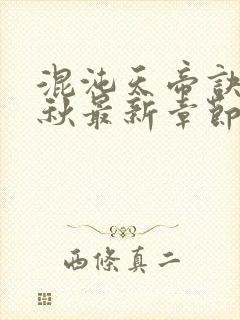 混沌天帝訣
秋最新章節
西條真二